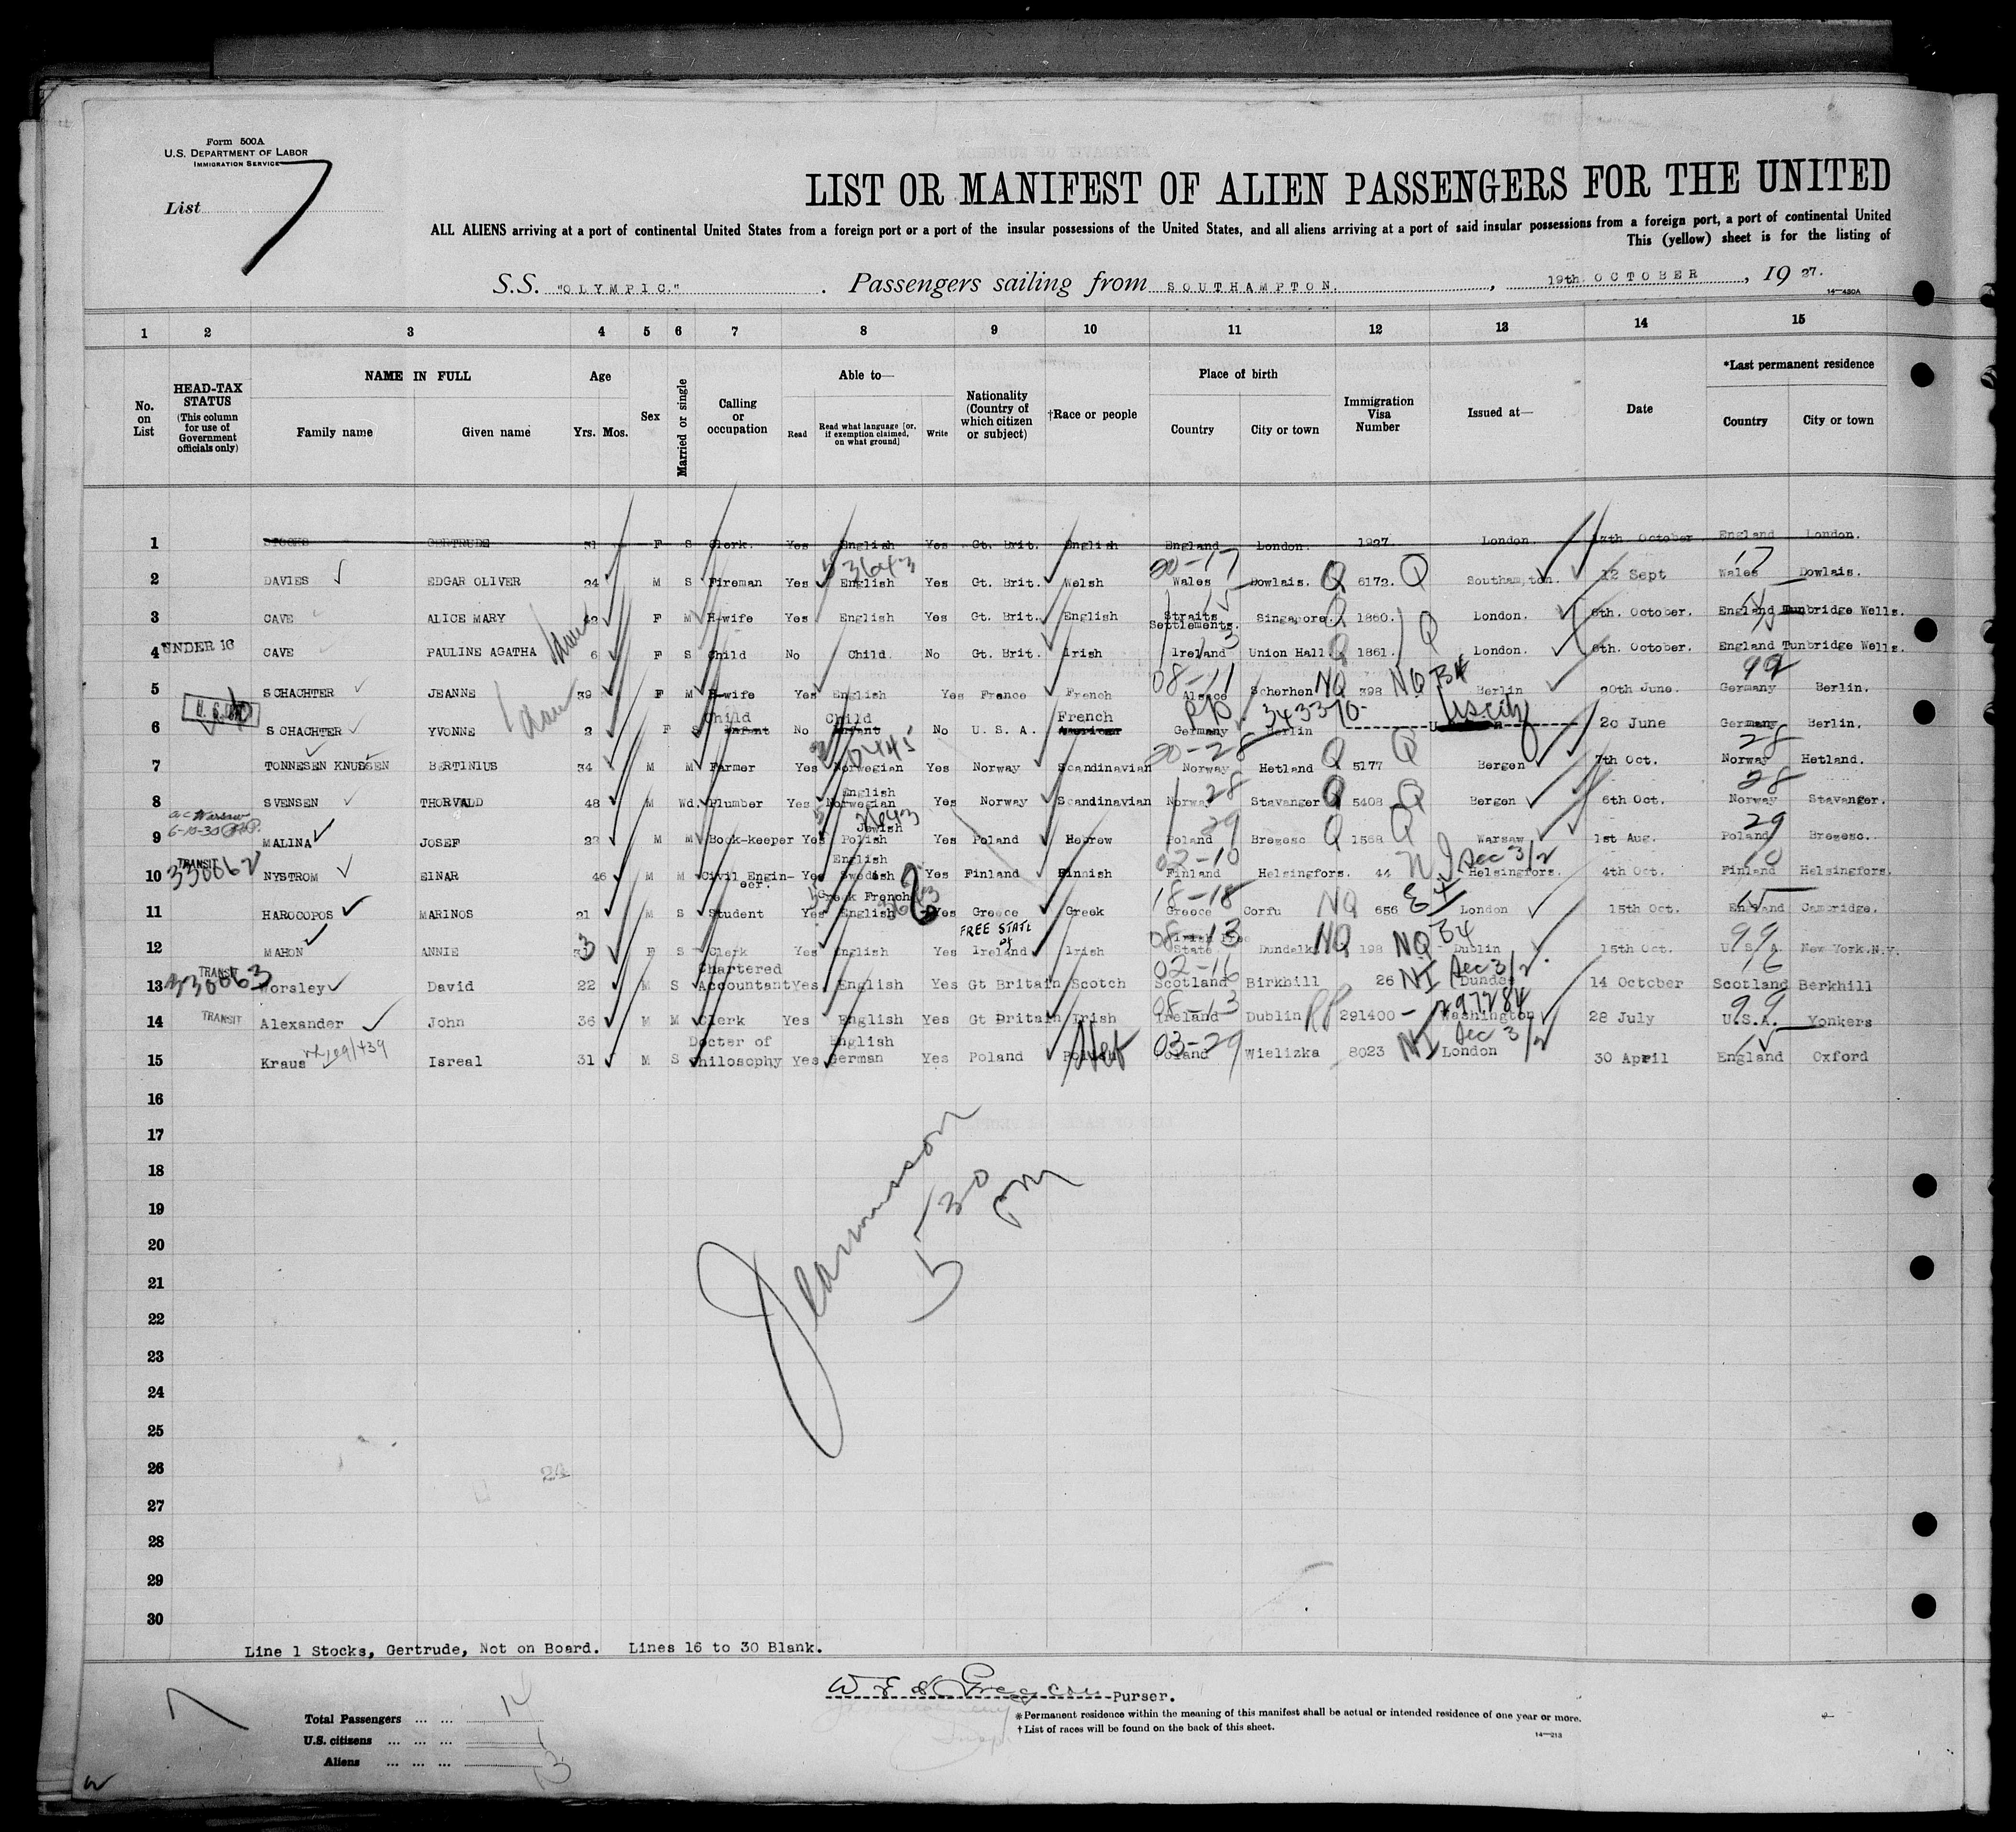 Form 500A
U.S. DEPARTMENT OF LABOR
IMMIGRATION SERVICE
List 7
LIST OR MANIFEST OF ALIEN PASSENGERS FOR THE UNITED
ALL ALIENS arriving at a port of continental United States from a foreign port or a port of the insular possessions of the United States, and all aliens arriving at a port of said insular possessions from a foreign port, a port of continental United
This (yellow) sheet is for the listing of
S.S. "OLYMPIC." Passengers sailing from SOUTHAMPTON. , 19th OCTOBER , 19 27.
14—430A
1 2 3 4 5 6 7 8 9 10 11 12 13 14 15
No. on List
HEAD-TAX STATUS (This column for use of Government officials only)
NAME IN FULL Family name Given name
Age Yrs. Mos.
Sex
Married or single
Calling or occupation
Able to— Read Read what language [or, if exemption claimed, on what ground] Write
Nationality (Country of which citizen or subject)
†Race or people
Place of birth Country City or town
Immigration Visa Number
Issued at—
Date
*Last permanent residence Country City or town
1 STOCKS GERTRUDE 31 F S Clerk. Yes English Yes Gt. Brit. English England London. 1927 London. 17th October England London.
53643 20-17 17
2 DAVIES EDGAR OLIVER 24 M S Fireman Yes English Yes Gt. Brit. Welsh Wales Dowlais. Q 6172. Q Southampton. 12 Sept Wales Dowlais.
3 CAVE ALICE MARY 42 F M H-wife Yes English Yes Gt. Brit. English Straits Settlements. Singapore. Q 1860. Q London. 6th. October. England Tunbridge Wells.
4 UNDER 16 CAVE PAULINE AGATHA 6 F S Child No Child. No Gt. Brit. Irish Ireland Union Hall Q 1861. London. 6th. October. England Tunbridge Wells.
08-11 99
5 SCHACHTER JEANNE 39 F M H-wife Yes English Yes France French Alsace Scherhen NQ 398 NQ B4 Berlin 20th June. Germany Berlin.
Child Child French PP 343370 US City
6 SCHACHTER YVONNE 2 F S Infant No Infant No U. S. A. American Germany Berlin 20 June Germany Berlin.
20-28 28
7 TONNESEN KNUSSEN BERTINIUS 34 M M Farmer Yes Norwegian Yes Norway Scandinavian Norway Hetland Q 5177 Q Bergen 7th Oct. Norway Hetland.
English 28 28
8 SVENSEN THORVALD 48 M Wd. Plumber Yes Norwegian Yes Norway Scandinavian Norway Stavanger Q 5408 Q Bergen 6th Oct. Norway Stavanger.
ac Warsaw
6-10-30
Jewish 29 29
9 MALINA JOSEF 23 M M Book-keeper Yes Polish Yes Poland Hebrew Poland Bregesc Q 1568 Q Warsaw 1st Aug. Poland Bregesc.
TRANSIT English 02-10 Sec 3/2 10
10 330062 NYSTROM EINAR 46 M M Civil Engin-eer. Yes Swedish Yes Finland Finnish Finland Helsingfors. 44 NI Helsingfors. 4th Oct. Finland Helsingfors.
Greek French 18-18 15
11 HAROCOPOS MARINOS 21 M S Student Yes English Yes Greece Greek Greece Corfu NQ 656 E4 London 15th Oct. England Cambridge.
FREE STATE of 08-13 99
12 MAHON ANNIE 33 F S Clerk Yes English Yes Ireland Irish Irish Free State Dundalk NQ 198 NQ B4 Dublin 15th Oct. U.S.A. New York.N.Y.
TRANSIT Chartered 02-16 Sec 3/2. 16
13 330063 Worsley David 22 M S Accountant Yes English Yes Gt Britain Scotch Scotland Birkhill 26 NI Dundee 14 October Scotland Berkhill
TRANSIT 08-13 297284 99
14 Alexander John 36 M M Clerk Yes English Yes Gt Britain Irish Ireland Dublin RP 291400 - Washington 28 July U.S.A. Yonkers
Doctor of English 03-29 Sec 3/2 15
15 Kraus Isreal 31 M S Philosophy Yes German Yes Poland Polish Heb Poland Wielizka 8023 NI London 30 April England Oxford
16
17
18
19
20
21
22
23
24
25
26
27
28
29
30
530
PM
Line 1 Stocks, Gertrude, Not on Board. Lines 16 to 30 Blank.
Purser.
Total Passengers ... ... 14
U.S. citizens ... ... ... 1
Aliens ... ... ... 13
*Permanent residence within the meaning of this manifest shall be actual or intended residence of one year or more.
†List of races will be found on the back of this sheet.
14—213